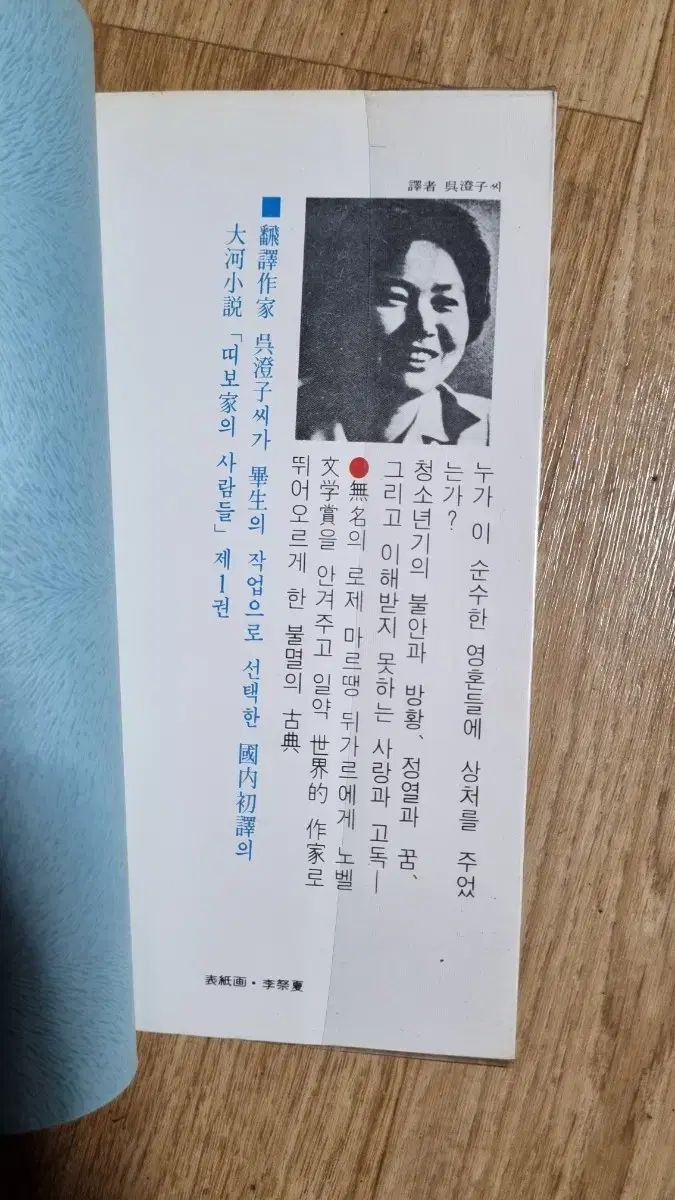 譯者 吳澄子씨
누가 이 순수한 영혼들에 상처를 주었
는가?
청소년기의 불안과 방황、정열과 꿈、
그리고 이해받지 못하는 사랑과 고독—
●無名의 로제 마르땡 뒤가르에게 노벨
文学賞을 안겨주고 일약 世界的 作家로
뛰어오르게 한 불멸의 古典
■ 飜譯作家 吳澄子씨가 畢生의 작업으로 선택한 國内初譯의
大河小説 「띠보家의 사람들」 제1권
表紙画・李祭夏